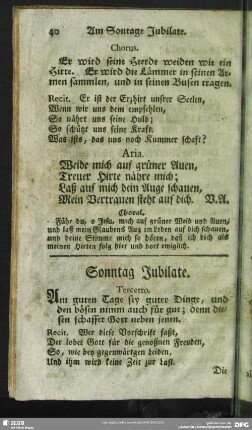 40 Am Sontage Jubilate.
Chorus.
Er wird seine Heerde weiden wie ein
Hirte. Er wird die Lämmer in seinen Ar-
men sammlen, und in seinen Busen tragen.
Recit. Er ist der Erzhirt unsrer Seelen,
Wenn wir uns dem empfehlen,
So nährt uns seine Huld;
So schützt uns seine Kraft.
Was ists, das uns noch Kummer schaft?
Aria.
Weide mich auf grüner Auen,
Treuer Hirte nähre mich;
Laß auf mich dein Auge schauen,
Mein Vertrauen steht auf dich. V.A.
Choral.
Führ du, o Jesu, mich auf grüner Weid und Auen,
und laß mein Glaubens Aug im Leben auf dich schauen,
und deine Stimme mich so hören, daß ich dich als
meinen Hirten folg hier und dort ewiglich.
Sonntag Jubilate.
Tercetto.
Am guten Tage sey guter Dinge, und
den bösen nimm auch für gut; denn die-
sen schaffet Gott neben jenen.
Recit. Wer diese Vorschrift faßt,
Der lobet Gott für die genoßnen Freuden,
So, wie bey gegenwärtgen Leiden,
Und ihm wird keine Zeit zur Last.
Die